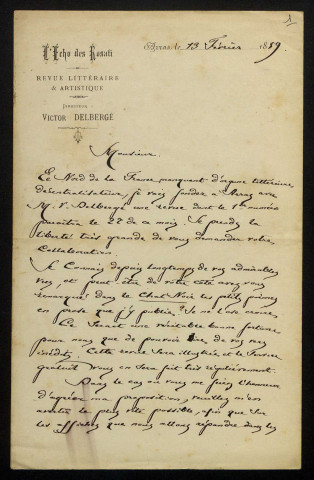 1
L'Echo des Rosati
Arras, le 13 Février 1889
REVUE LITTÉRAIRE
& ARTISTIQUE
DIRECTEUR :
VICTOR DELBERGÉ
Monsieur,
Le Nord de la France manquant d'organe littéraire
décentralisateur, je vais fonder à Arras avec
M. V. Delbergé une revue dont le 1er numéro
paraîtra le 22 de ce mois. Je prends la
liberté très grande de vous demander votre
collaboration.
Je connais depuis longtemps de vos admirables
vers, et peut-être de votre côté avez-vous
remarqué dans le Chat Noir les petits poèmes
en prose que j'y publie? Je ne l'ose croire.
Ce serait une véritable bonne fortune
pour nous que de pouvoir lire de vos vers
inédits. Cette revue sera illustrée et le service
gratuit vous en sera fait très régulièrement.
Dans le cas où vous me feriez l'honneur
d'agréer ma proposition, veuillez m'en
avertir le plus vite possible, afin que sur
les affiches que nous allons répandre dans les